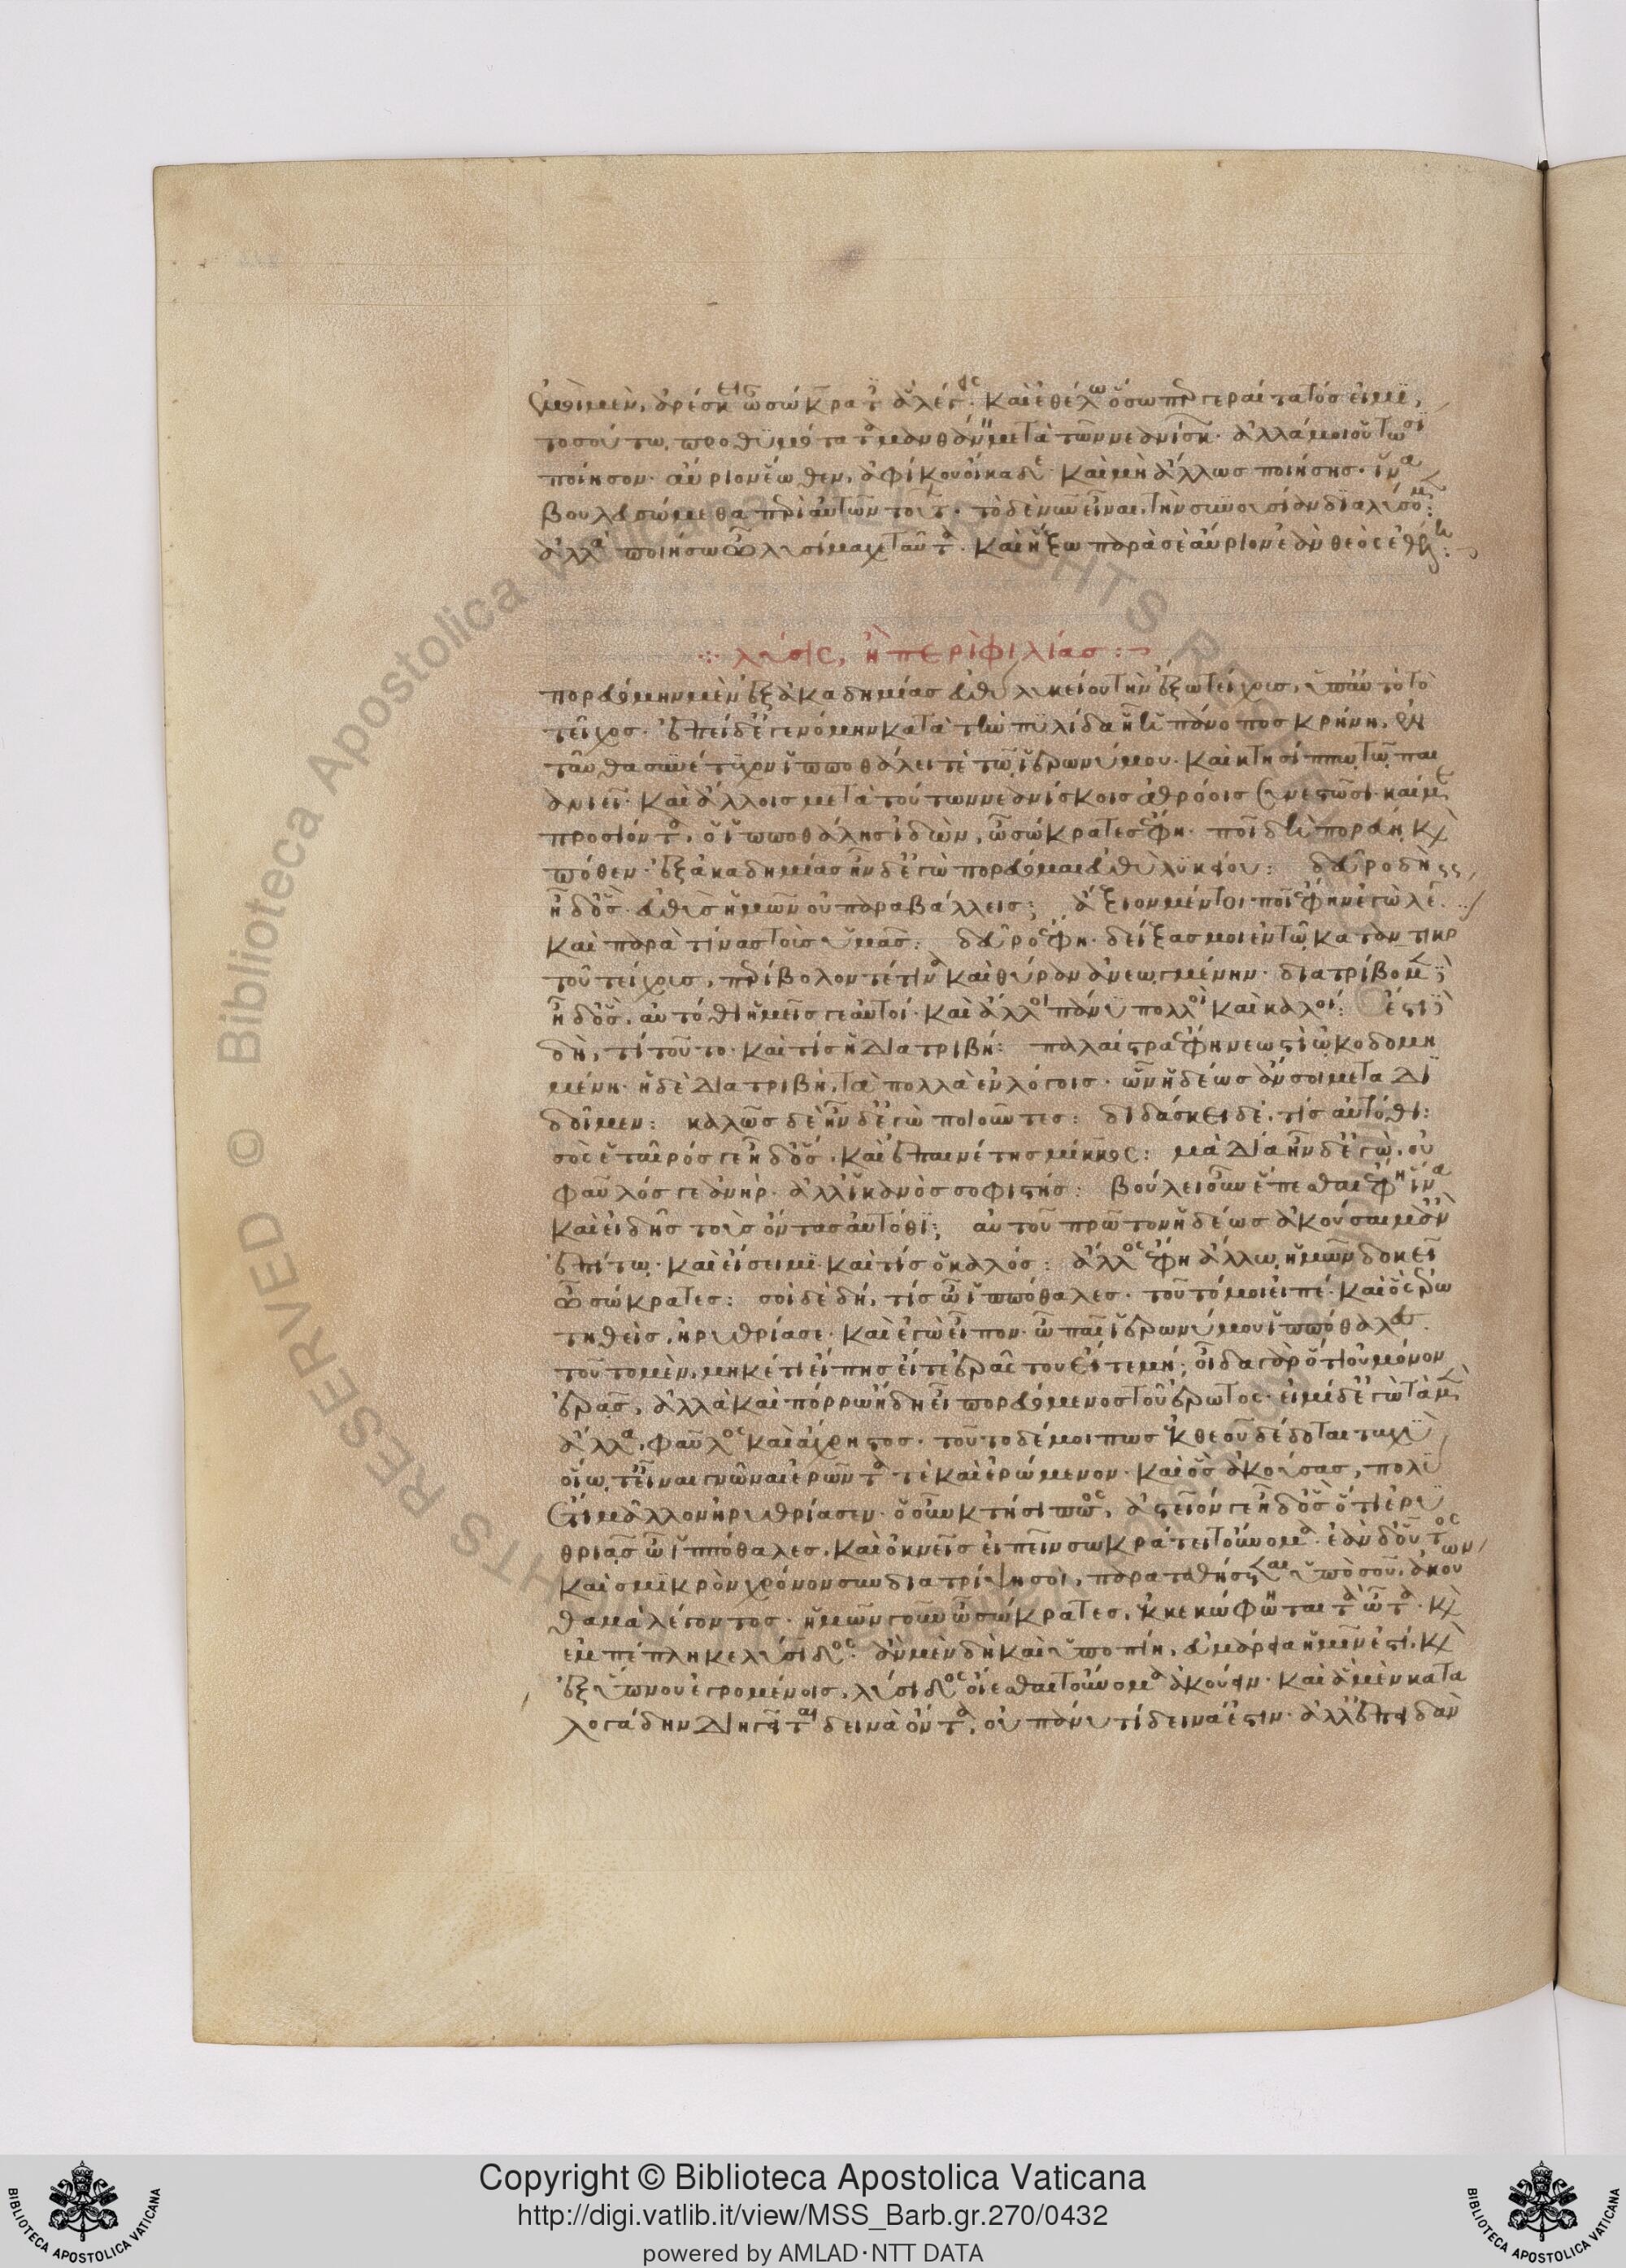 ἐμοὶ μὲν ἀρέσκει ὦ σώκρατες ἃ λέγεις· καὶ ἐθέλω ὅσωπερ γεραίτατός εἰμι,
τοσούτω προθυμότατα μανθάνειν μετὰ τῶν νεανίσκων· ἀλλά μοι οὑτωσὶ
ποίησον· αὔριον ἕωθεν ἀφίκου οἴκαδε· καὶ μὴ ἄλλως ποιήσης· ἵνα
βουλευσώμεθα περὶ αὐτῶν τούτων· τὸ δὲ νῦν εἶναι, τὴν συνουσίαν διαλύσομεν:
ἀλλὰ ποιήσω ὦ λυσίμαχε ταῦτα· καὶ ἥξω παρὰ σὲ αὔριον ἐὰν θεὸς ἐθέλη:
λύσις, ἢ περὶ φιλίας:
πορευόμην μὲν ἐξ ἀκαδημίας εὐθὺ λυκείου τὴν ἔξω τείχους, ὑπ' αὐτὸ τὸ
τεῖχος· ἐπειδὴ δ' ἐγενόμην κατὰ τὴν πυλίδα ἧ ἡ πάνοπος κρήνη, ἐν
ταῦθα συνέτυχον ἱπποθάλει τὲ τῶ ἱερωνύμου· καὶ κτησίππω τῶ παι
ανιεῖ· καὶ ἄλλοις μετὰ τούτων νεανίσκοις ἀθρόοις συνεστῶσι· καί με
προσιόντα, ὁ ἱπποθάλης ἰδὼν, ὦ σώκρατες ἔφη· ποῖ δὴ πορεύη καὶ
πόθεν· ἐξ ἀκαδημίας ἦν δ' ἐγὼ πορεύομαι εὐθὺ λυκείου: δεῦρο δὴ
ἦ δ' ὅς· εὐθὺς ἡμῶν οὐ παραβάλλεις; ἄξιον μέντοι· ποῖ ἔφην ἐγὼ λέγεις
καὶ παρὰ τίνας τοὺς ὑμᾶς: δεῦρο ἔφη· δείξας μοι ἐν τῶ καταντικρὺ
τοῦ τείχους, περίβολόν τέ τινα καὶ θύραν ἀνεωγμένην· διατρίβομεν δὲ
ἦ δ' ὅς, αὐτόθι ἡμεῖς τε αὐτοί· καὶ ἄλλοι πάνυ πολλοὶ καὶ καλοί: ἔστι
δὴ, τί τοῦτο· καὶ τίς ἡ διατριβή: παλαίστρα ἔφη νεωστὶ ὠκοδομη
μένη· ἡ δὲ διατριβὴ, τὰ πολλὰ ἐν λόγοις· ὧν ἡδέως ἄν σοι μεταδι
δοῖμεν: καλῶς δὲ ἦν δ' ἐγὼ ποιοῦντες: διδάσκει δὲ, τίς αὐτόθι:
σὸς ἑταῖρός γε ἦ δ' ὅς, καὶ ἐπαινέτης μίκκος: μὰ δία ἦν δ' ἐγὼ, οὐ
φαῦλός γε ἀνήρ· ἀλλ' ἱκανὸς σοφιστής: βούλει οὖν ἕπεσθαι ἔφη ἵνα
καὶ εἰδῆς τοὺς ὄντας αὐτόθι; αὐτοῦ πρῶτον ἡδέως ἀκούσαιμ' ἂν
ἐπὶ τῶ καὶ εἴσειμι· καὶ τίς ὁ καλός: ἄλλος ἔφη ἄλλω ἡμῶν δοκεῖ
ὦ σώκρατες: σοὶ δὲ δὴ, τίς ὦ ἱππόθαλες· τοῦτό μοι εἰπέ· καὶ ὃς ἐρω
τηθεὶς, ἠρυθρίασε· καὶ ἐγὼ εἶπον· ὦ παῖ ἱερωνύμου ἱππόθαλες
τοῦτο μὲν, μηκέτι εἴπης εἴτε ἐρᾶς του εἴτε μή; οἶδα γὰρ ὅτι οὐ μόνον
ἐρᾶς, ἀλλὰ καὶ πόρρω ἤδη εἶ πορευόμενος τοῦ ἔρωτος· εἰμὶ δ' ἐγὼ τὰ μὲν
ἄλλα, φαῦλος καὶ ἄχρηστος· τοῦτο δέ μοι πως ἐκ θεοῦ δέδοται ταχὺ
οἵω τ' εἶναι γνῶναι ἐρῶντά τε καὶ ἐρώμενον· καὶ ὃς ἀκούσας, πολὺ
ἔτι μᾶλλον ἠρυθρίασεν· ὁ οὖν κτήσιππος, ἀστεῖόν γε ἦ δ' ὃς ὅτι ἐρυ
θριᾶς ὦ ἱππόθαλες, καὶ ὀκνεῖς εἰπεῖν σωκράτει τοὔνομα· ἐὰν δ' οὗτος
καὶ σμικρὸν χρόνον συνδιατρίψη σοι, παραταθήσεται ὑπὸ σοῦ, ἀκούων
θαμὰ λέγοντος· ἡμῶν γοῦν ὦ σώκρατες, ἐκκεκώφηται τὰ ὦτα· καὶ
ἐμπέπληκε λύσιδος· ἂν μὲν δὴ καὶ ὑποπίη, εὐμάρεια ἡμῖν ἐστὶ, καὶ
ἐξ ὕπνου ἐγρομένοις, λύσιδος οἴεσθαι τοὔνομα ἀκούειν· καὶ ἃ μὲν κατα
λογάδην διηγεῖται δεινὰ ὄντα, οὐ πάνυ τί δεινά ἐστιν· ἀλλ' ἐπειδὰν